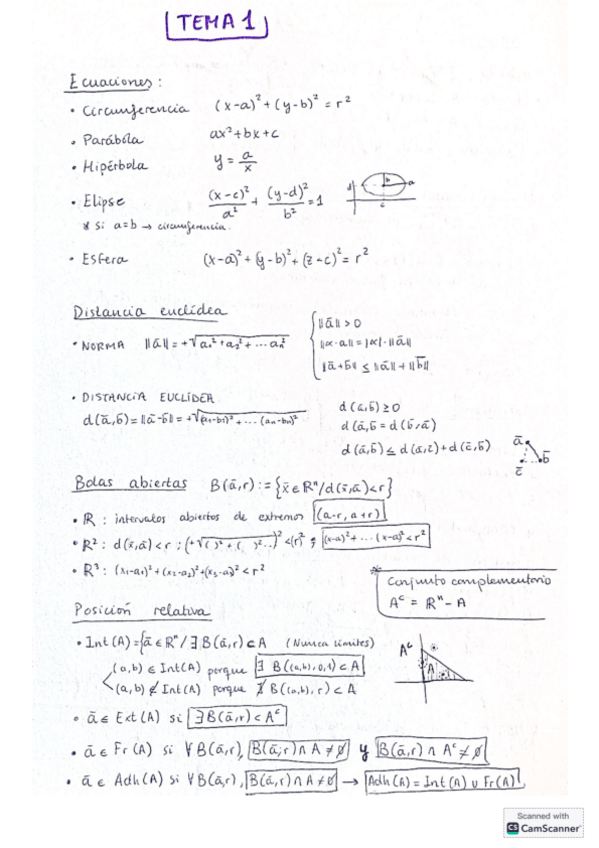 TEMA 1
Ecuaciones:
• Circunferencia (x-a)² + (y-b)² = r²
• Parábola ax² + bx + c
• Hipérbola y = a/x
• Elipse (x-c)²/a² + (y-d)²/b² = 1
* Si a=b → circunferencia.
• Esfera (x-a)² + (y-b)² + (z-c)² = r²
Distancia euclídea
• NORMA ||ā|| = +√a₁² + a₂² + ... aₙ²
||ā|| > 0
||α·a|| = |α|·||ā||
||ā+b̄|| ≤ ||ā|| + ||b̄||
• DISTANCIA EUCLÍDEA
d(ā,b̄) = ||ā-b̄|| = +√(a₁-b₁)² + ... (aₙ-bₙ)²
d(ā,b̄) ≥ 0
d(ā,b̄ = d(b̄,ā)
d(ā,b̄) ≤ d(ā,c̄) + d(c̄,b̄)
ā
b̄
c̄
Bolas abiertas B(ā,r) := {x̄ ∈ ℝⁿ / d(x̄,ā) < r}
• ℝ : intervalos abiertos de extremos (a-r, a+r)
• ℝ² : d(x̄,ā) < r ; (+√( )² + ( )²...)² < (r)² ; (x-a)² + ... (x-a)² < r²
• ℝ³ : (x₁-a₁)² + (x₂-a₂)² + (x₃-a₃)² < r²
* Conjunto complementario
Aᶜ = ℝⁿ - A
Posición relativa
• Int(A) = {ā ∈ ℝⁿ / ∃ B(ā,r) ⊂ A (Nunca límites)
(a,b) ∈ Int(A) porque ∃ B((a,b),0,1) ⊂ A
(a,b) ∉ Int(A) porque ∄ B((a,b),r) ⊂ A
Aᶜ
A
• ā ∈ Ext(A) si ∃ B(ā,r) ⊂ Aᶜ
• ā ∈ Fr(A) si ∀ B(ā,r), B(ā,r) ∩ A ≠ ∅ y B(ā,r) ∩ Aᶜ ≠ ∅
• ā ∈ Adh(A) si ∀ B(ā,r), B(ā,r) ∩ A ≠ ∅ → Adh(A) = Int(A) ∪ Fr(A)
Scanned with
CS CamScanner